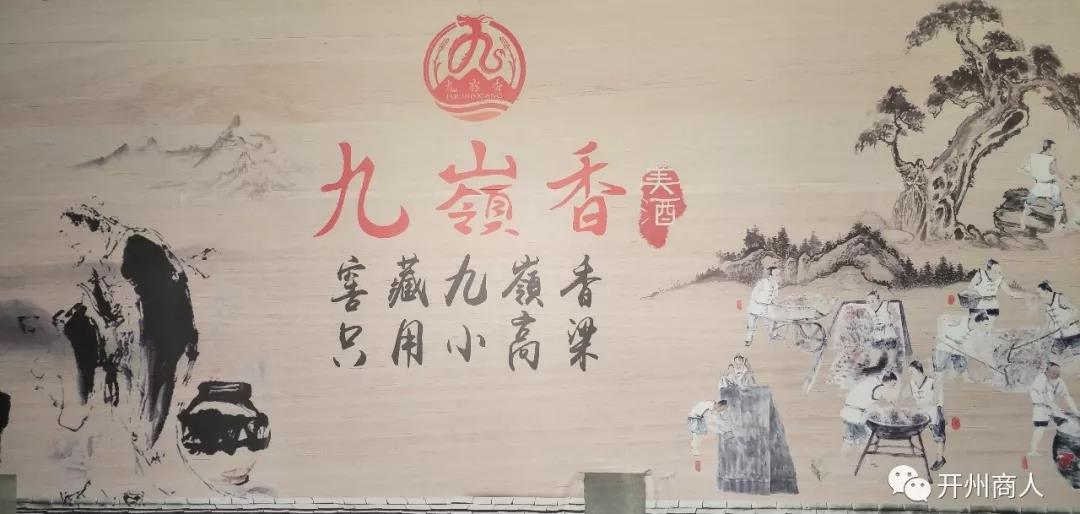 九嶺香
九嶺香
美酒
窖藏九嶺香
只用小高梁
开州商人